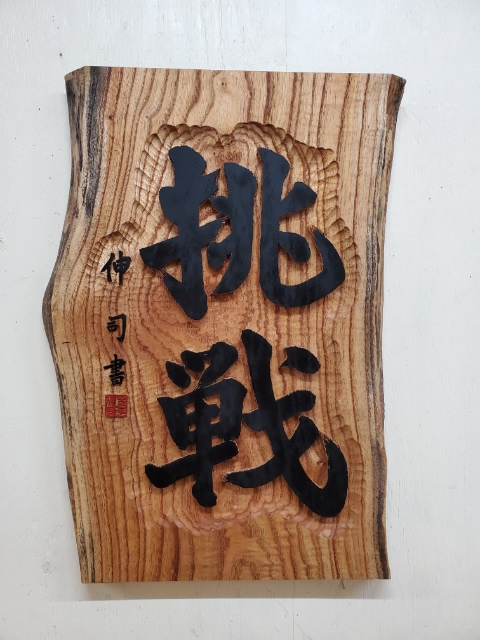 挑戦
伸司書